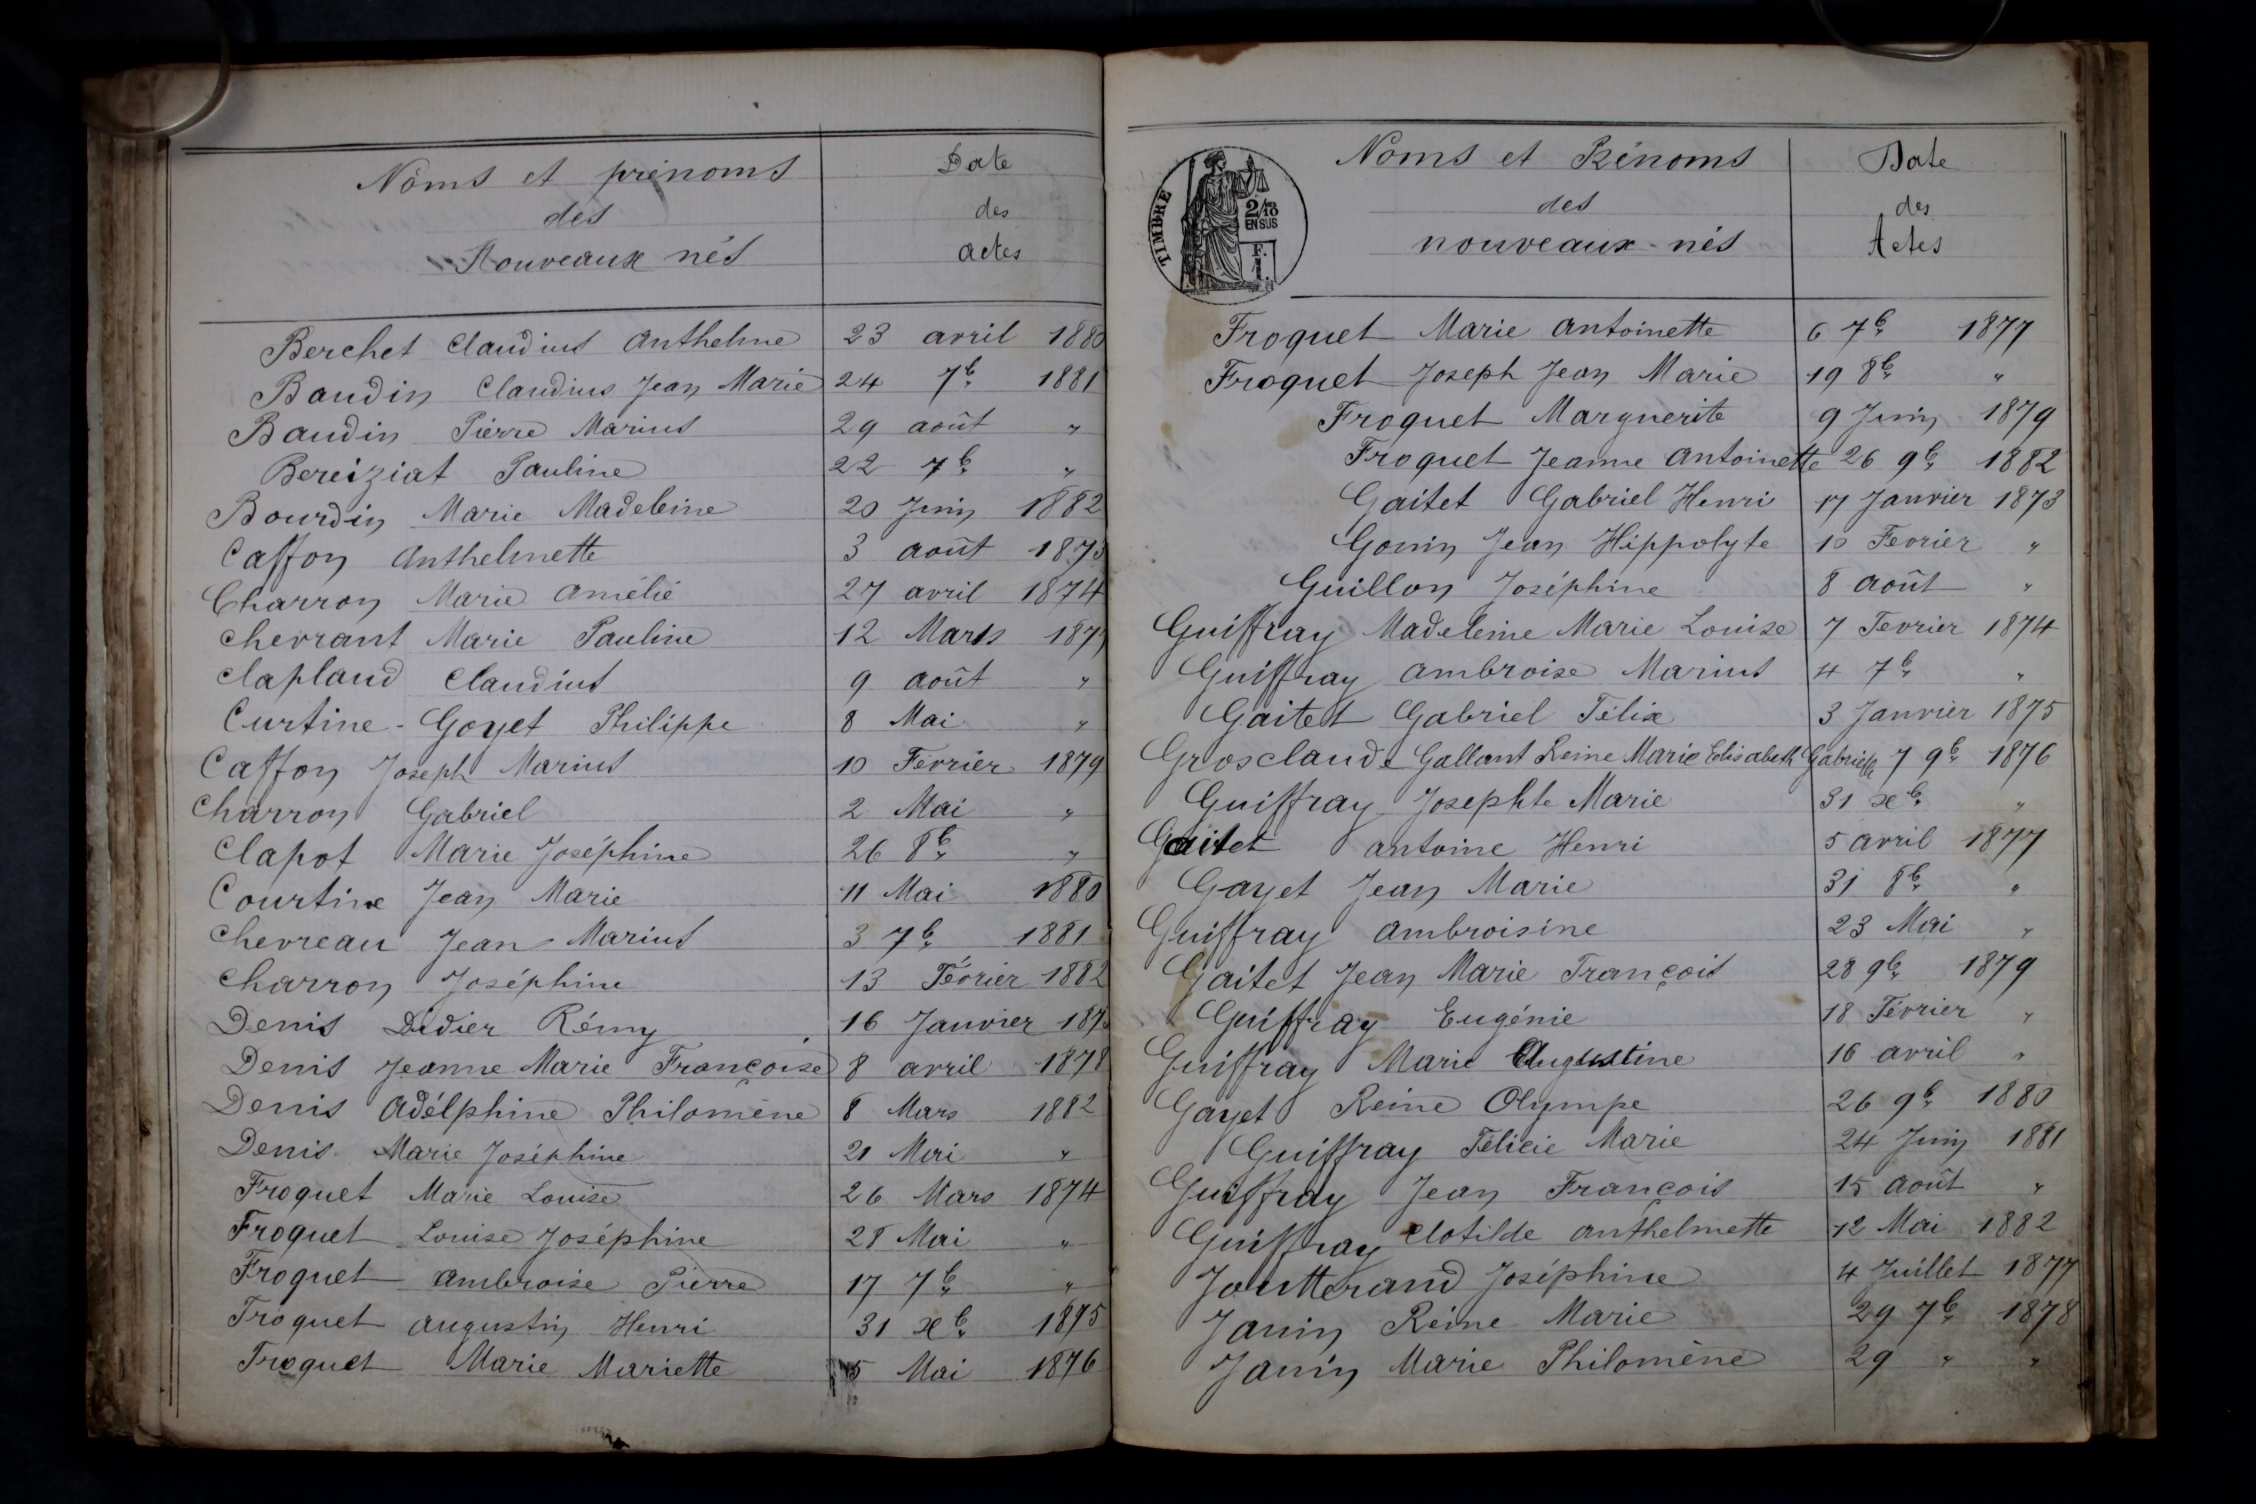 Noms et prénoms
des
Nouveaux nés
Date
des
actes
Berchet Claudius Anthelme 23 avril 1880
Baudin Claudius Jean Marie 24 7b. 1881
Baudin Pierre Marius 29 août "
Bereiziat Pauline 22 7b. "
Bourdin Marie Madeleine 20 Juin 1882
Caffon Anthelmette 3 août 1873
Charron Marie Amélie 27 avril 1874
Chevrant Marie Pauline 12 Mars
Clapland Claudius 9 août "
Curtine-Goyet Philippe 8 Mai "
Caffon Joseph Marius 10 Février 1879
Charron Gabriel 2 Mai "
Clapot Marie Joséphine 26 8b. "
Courtine Jean Marie 11 Mai 1880
Chevreau Jean Marius 3 7b. 1881
Charron Joséphine 13 Février 1882
Denis Didier Rémy 16 Janvier
Denis Jeanne Marie Françoise 8 avril 1878
Denis Adélphine Philomène 8 Mars 1882
Denis Marie Joséphine 21 Mai "
Froquet Marie Louise 26 Mars 1874
Froquet Louise Joséphine 28 Mai "
Froquet Ambroise Pierre 17 7b. "
Froquet Augustin Henri 31 xb. 1875
Froquet Marie Mariette 5 Mai 1876
TIMBRE
2/10
EN SUS
F.
1.
Noms et Prénoms
des
nouveaux-nés
Date
des
Actes
Froquet Marie Antoinette 6 7b. 1877
Froquet Joseph Jean Marie 19 8b. "
Froquet Marguerite 9 Juin 1879
Froquet Jeanne Antoinette 26 9b. 1882
Gaitet Gabriel Henri 17 Janvier 1873
Gonin Jean Hippolyte 10 Fevrier "
Guillon Joséphine 8 août "
Guiffray Madeleine Marie Louise 7 Fevrier 1874
Guiffray Ambroise Marius 4 7b. "
Gaitet Gabriel Félix 3 Janvier 1875
Grosclaude Gallant Reine Marie Elisabeth Gabrielle 7 9b. 1876
Guiffray Josephte Marie 31 xb. "
Gaitet Antoine Henri 5 avril 1877
Gayet Jean Marie 31 8b. "
Guiffray Ambroisine 23 Mai "
Gaitet Jean Marie François 28 9b. 1879
Guiffray Eugénie 18 Février "
Guiffray Marie Augustine 16 avril "
Gayet Reine Olympe 26 9b. 1880
Guiffray Félicie Marie 24 Juin 1881
Guiffray Jean François 15 août "
Guiffray Clotilde Anthelmette 12 Mai 1882
Joutterand Joséphine 4 Juillet 1877
Janin Reine Marie 29 7b. 1878
Janin Marie Philomène 29 " "